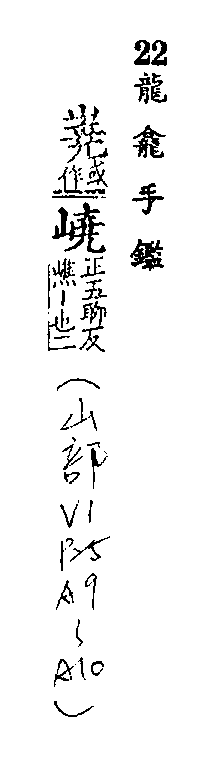 22龍龕手鑑
或作嶢正五聊反嶕〡也二(山部V1P.5A9~A10)